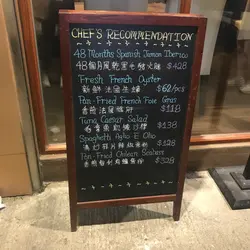 CHEF'S RECOMMENDATION
48 Months Spanish Jamon Iberico
48個月風乾黑毛豬火腿 $428
Fresh French Oyster
新鮮法國生蠔 $62/pcs
Pan-Fried French Foie Gras
香煎法國鴨肝 $138
Tuna Caesar Salad
吞拿魚凱撒沙律 $138
Spaghetti Aglio E Olio
意粉 $128
Pan-Fried Chilean Seabass
香煎智利鱸魚 $328